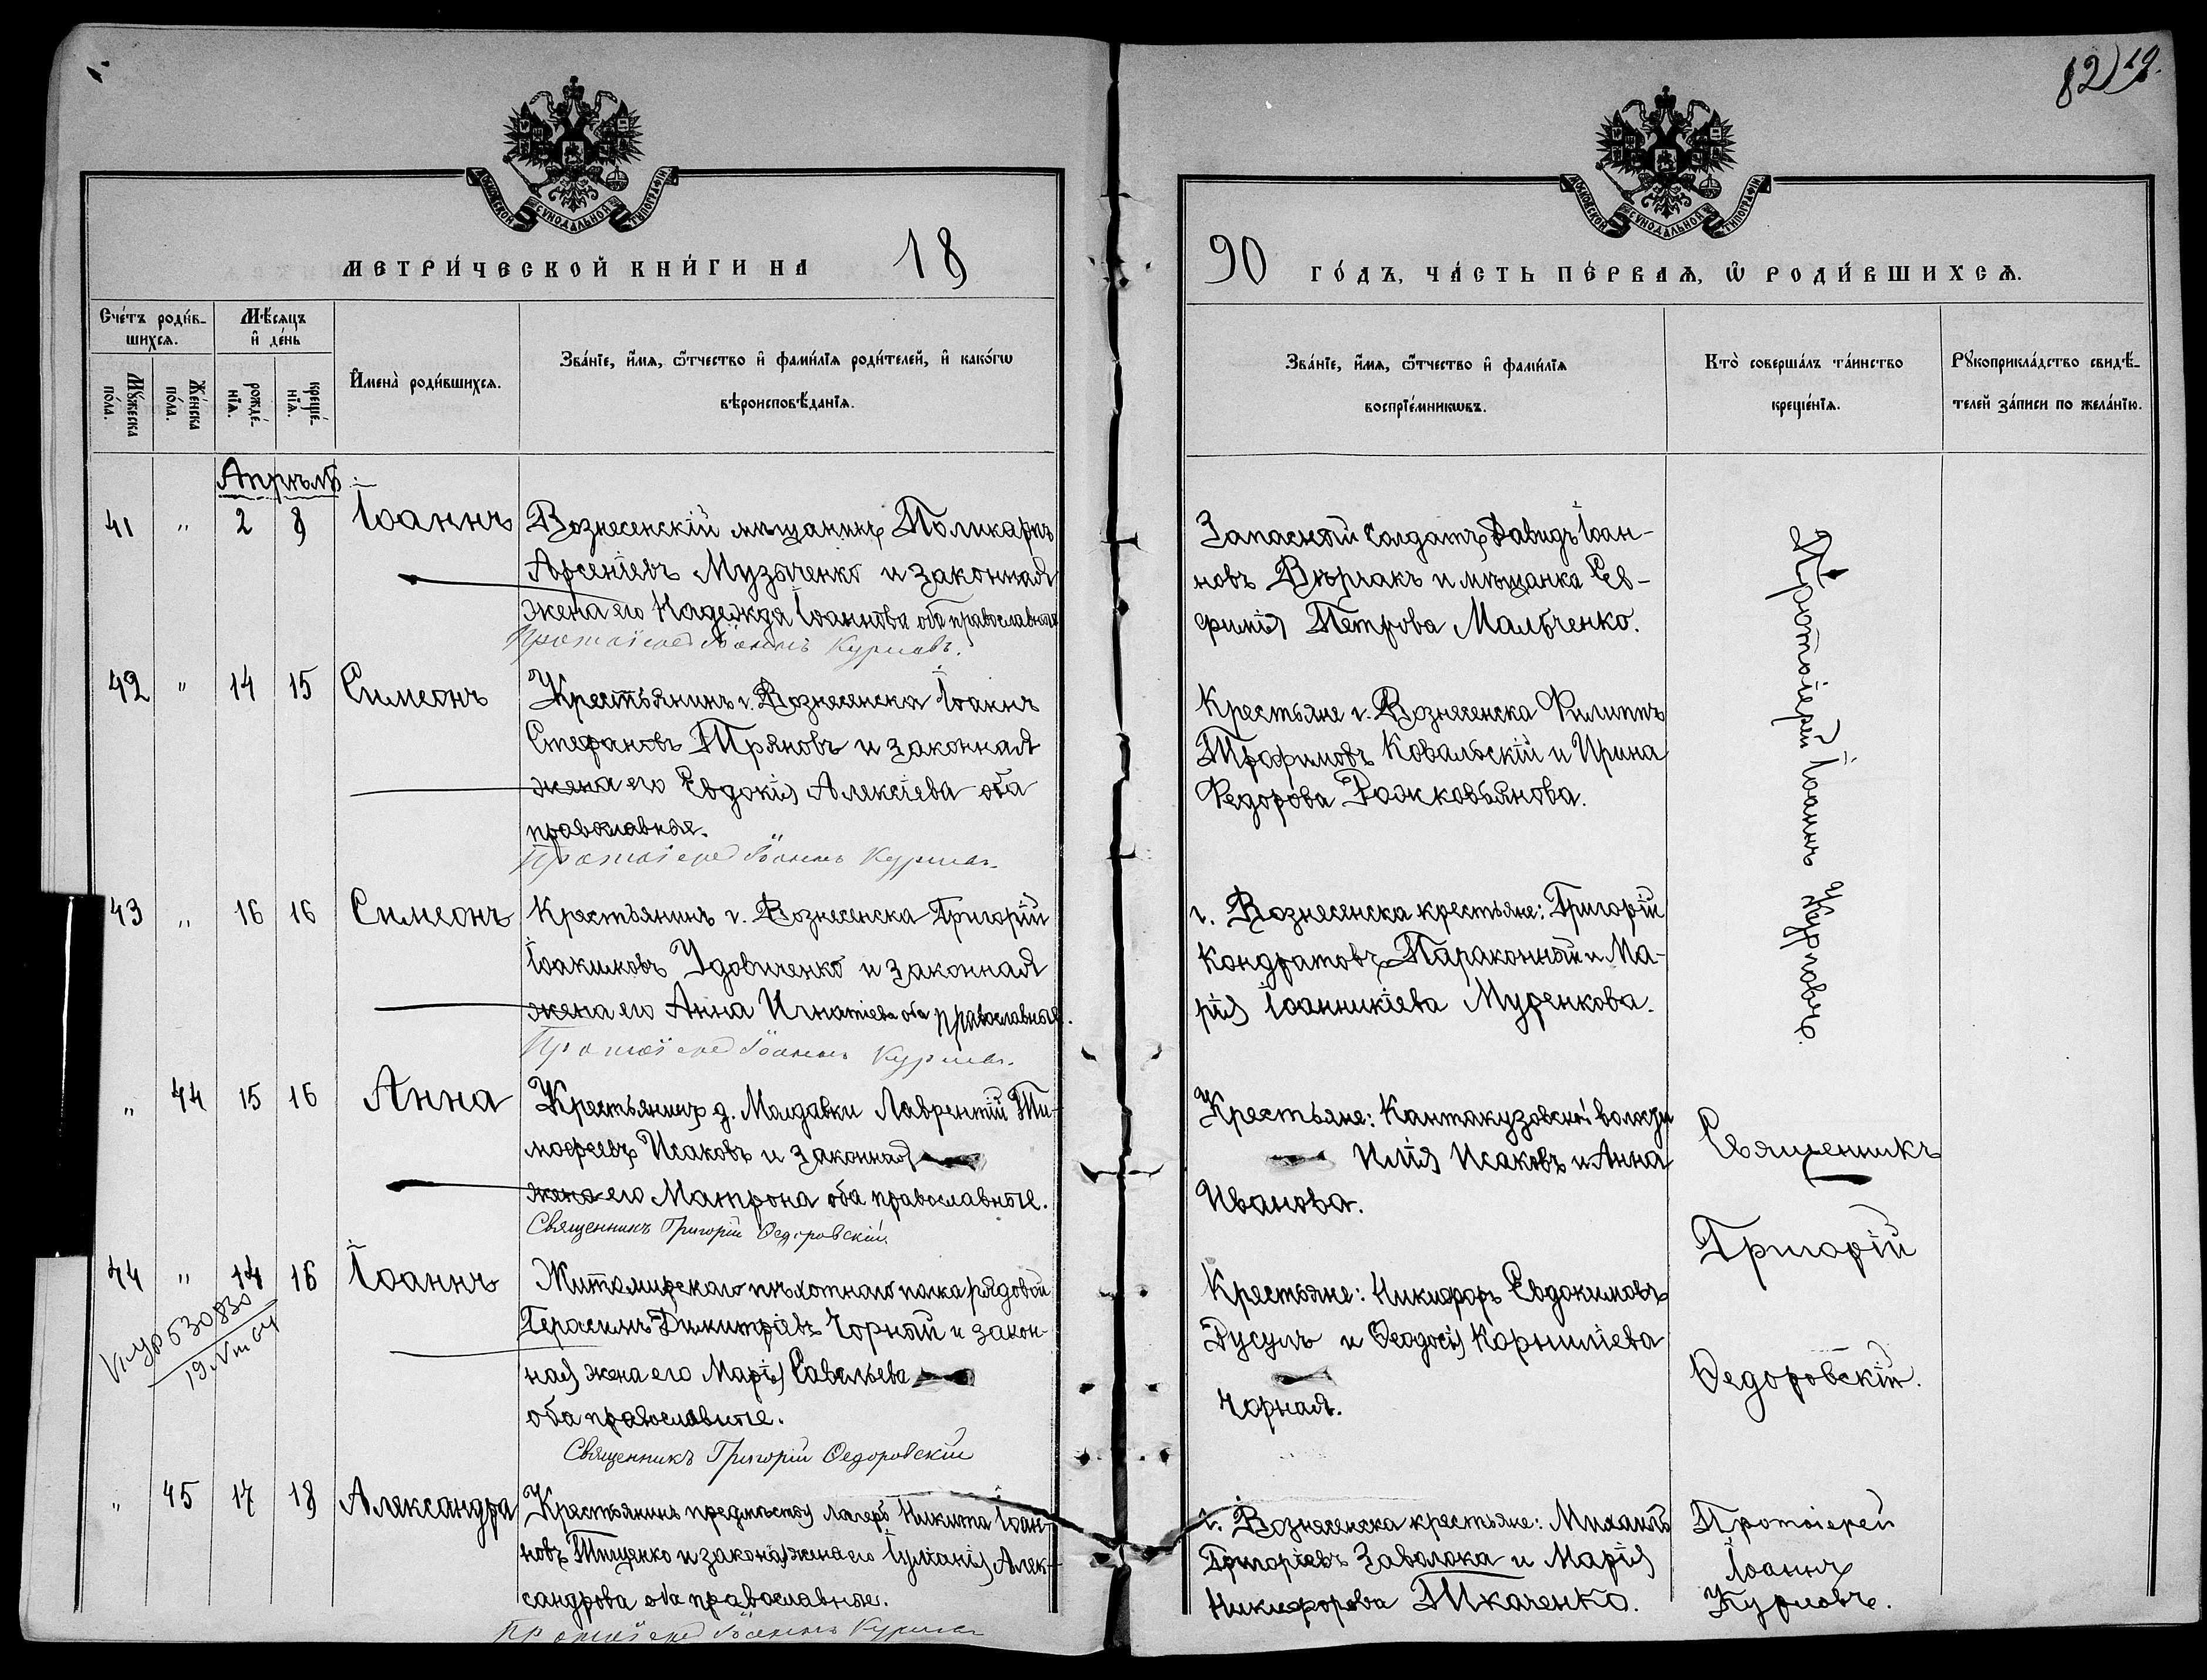 82) 19.
МОСКОВСКОЙ СУНОДАЛЬНОЙ ТИПОГРАФІИ
МОСКОВСКОЙ СУНОДАЛЬНОЙ ТИПОГРАФІИ
МЕТРИ́ЧЕСКОЙ КНИ́ГИ НА 18
90 ГО́ДЪ, ЧА́СТЬ ПЕ́РВАѦ, Ѡ РОДИ́ВШИХСѦ.
Сче́тъ роди́в-
шихсѧ.
Мѣ́сѧцъ
и҆ де́нь
Мꙋ́жеска по́ла.
Же́нска по́ла.
рожде́-
нїѧ.
креще́-
нїѧ.
И҆мена̀ роди́вшихсѧ.
Зва́нїе, и҆́мѧ, ѻ҆́тчество и҆ фами́лїѧ роди́телей, и҆ како́гѡ
вѣроисповѣ́данїѧ.
Зва́нїе, и҆́мѧ, ѻ҆́тчество и҆ фами́лїѧ
воспрїе́мникѡвъ.
Кто̀ соверша́лъ та́инство
креще́нїѧ.
Рꙋкоприкла́дство свидѣ́-
телей за́писи по жела́нїю.
Апрѣль:
41 " 2 8 Іоаннъ
Вознесенскій мѣщанинъ Поликарпъ
Арсеніевъ Музыченко и законная
жена его Надежда Іоаннова оба православные
Протоіерей Іоаннъ Курловъ.
Запасный солдатъ Давидъ Іоан-
новъ Вѣргакъ и мѣщанка Ев-
фимія Петрова Мальченко.
Протоіерей Іоаннъ Курловъ.
42 " 14 15 Симеонъ
Крестьянинъ г. Вознесенска Іоаннъ
Стефановъ Пряновъ и законная
жена его Евдокія Алексіева оба
православные.
Протоіерей Іоаннъ Курловъ.
Крестьяне г. Вознесенска Филиппъ
Трофимовъ Ковальскій и Ирина
Федорова Рожковьянова.
43 " 16 16 Симеонъ
Крестьянинъ г. Вознесенска Григорій
Іоакимовъ Удовиченко и законная
жена его Анна Игнатіева оба православные.
Протоіерей Іоаннъ Курловъ.
г. Вознесенска крестьяне: Григорій
Кондратовъ Параконный и Ма-
рія Іоанникіева Муренкова.
" 44 15 16 Анна
Крестьянинъ д. Молдавки Лаврентій Ти-
мофеевъ Исаковъ и законная
жена его Матрона оба православные.
Священникъ Григорій Ѳедоровскій.
Крестьяне: Кантакузовской волости
Илія Исаковъ и Анна
Иванова.
Священникъ
Григорій
Ѳедоровскій.
44 " 14 16 Іоаннъ
Житомирскаго пѣхотнаго полка рядовой
Герасимъ Димитріевъ Чорный и закон-
ная жена его Марія Савельева
оба православные.
Священникъ Григорій Ѳедоровскій
Крестьяне: Никифоръ Евдокимовъ
Русулъ и Ѳеодосія Корниліева
Чорная.
" 45 17 18 Александра
Крестьянинъ предмѣстья Лагерь Никита Іоан-
новъ Тищенко и законная жена его Іуліанія Алек-
сандрова оба православные.
Протоіерей Іоаннъ Курловъ
г. Вознесенска крестьяне: Михаилъ
Григоріевъ Заволока и Марія
Никифорова Ткаченко.
Протоіерей
Іоаннъ
Курловъ.